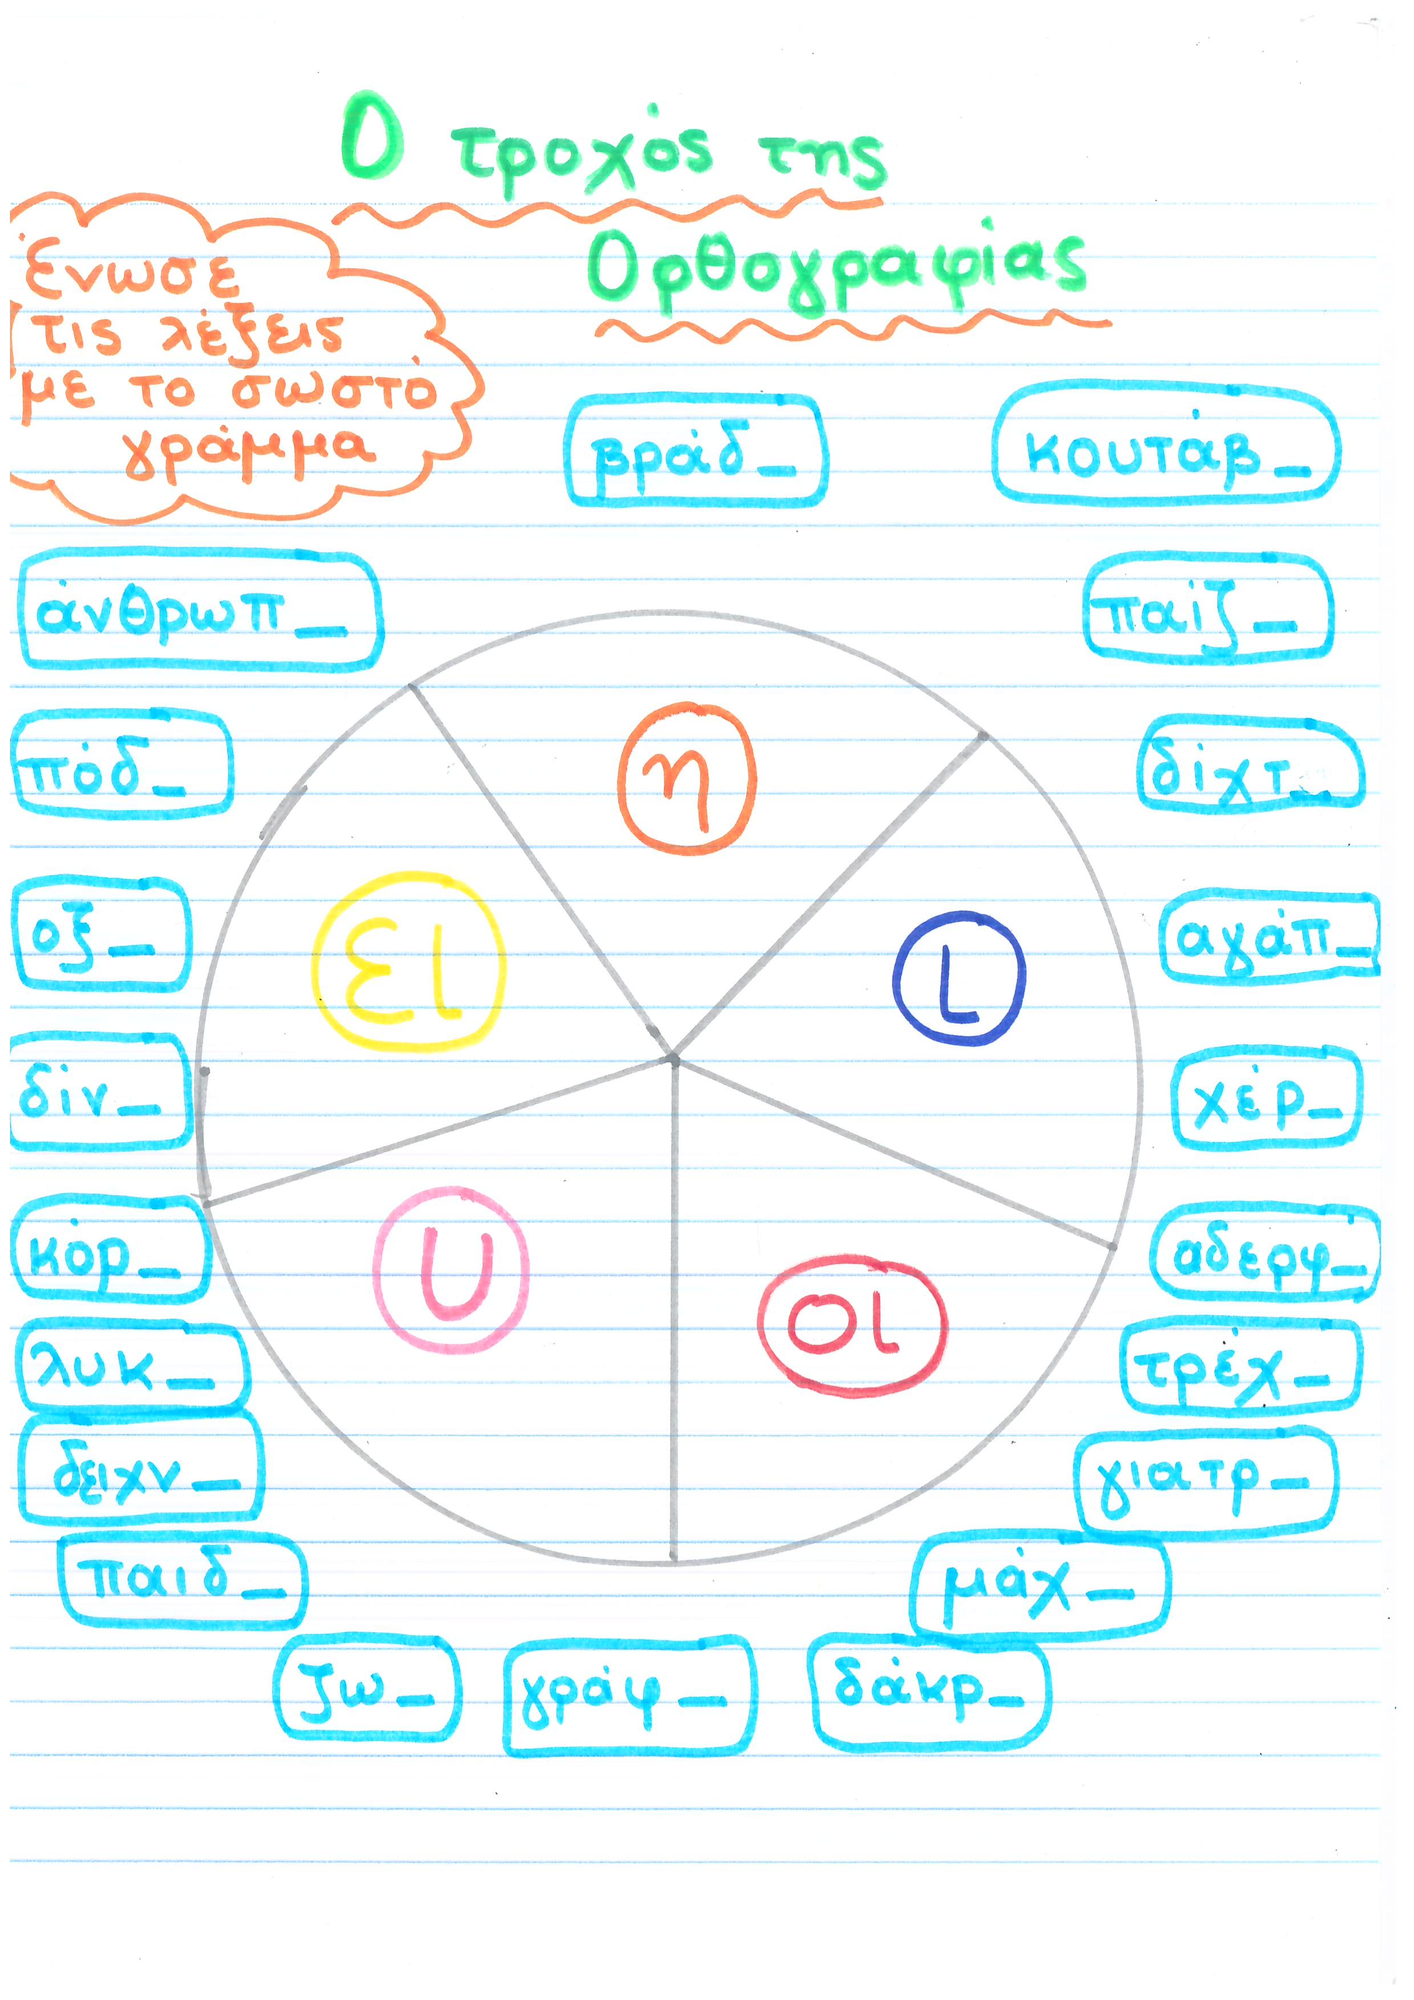 Ο τροχός της
Ορθογραφίας
Ένωσε
τις λέξεις
με το σωστό
γράμμα
βράδ_
κουτάβ_
άνθρωπ_
παίζ_
πόδ_
δίχτ_
οξ_
αγάπ_
δίν_
χέρ_
κόρ_
αδερφ_
λυκ_
τρέχ_
δειχν_
γιατρ_
παιδ_
μάχ_
ζω_
γράφ_
δάκρ_
η
ει
ι
υ
οι